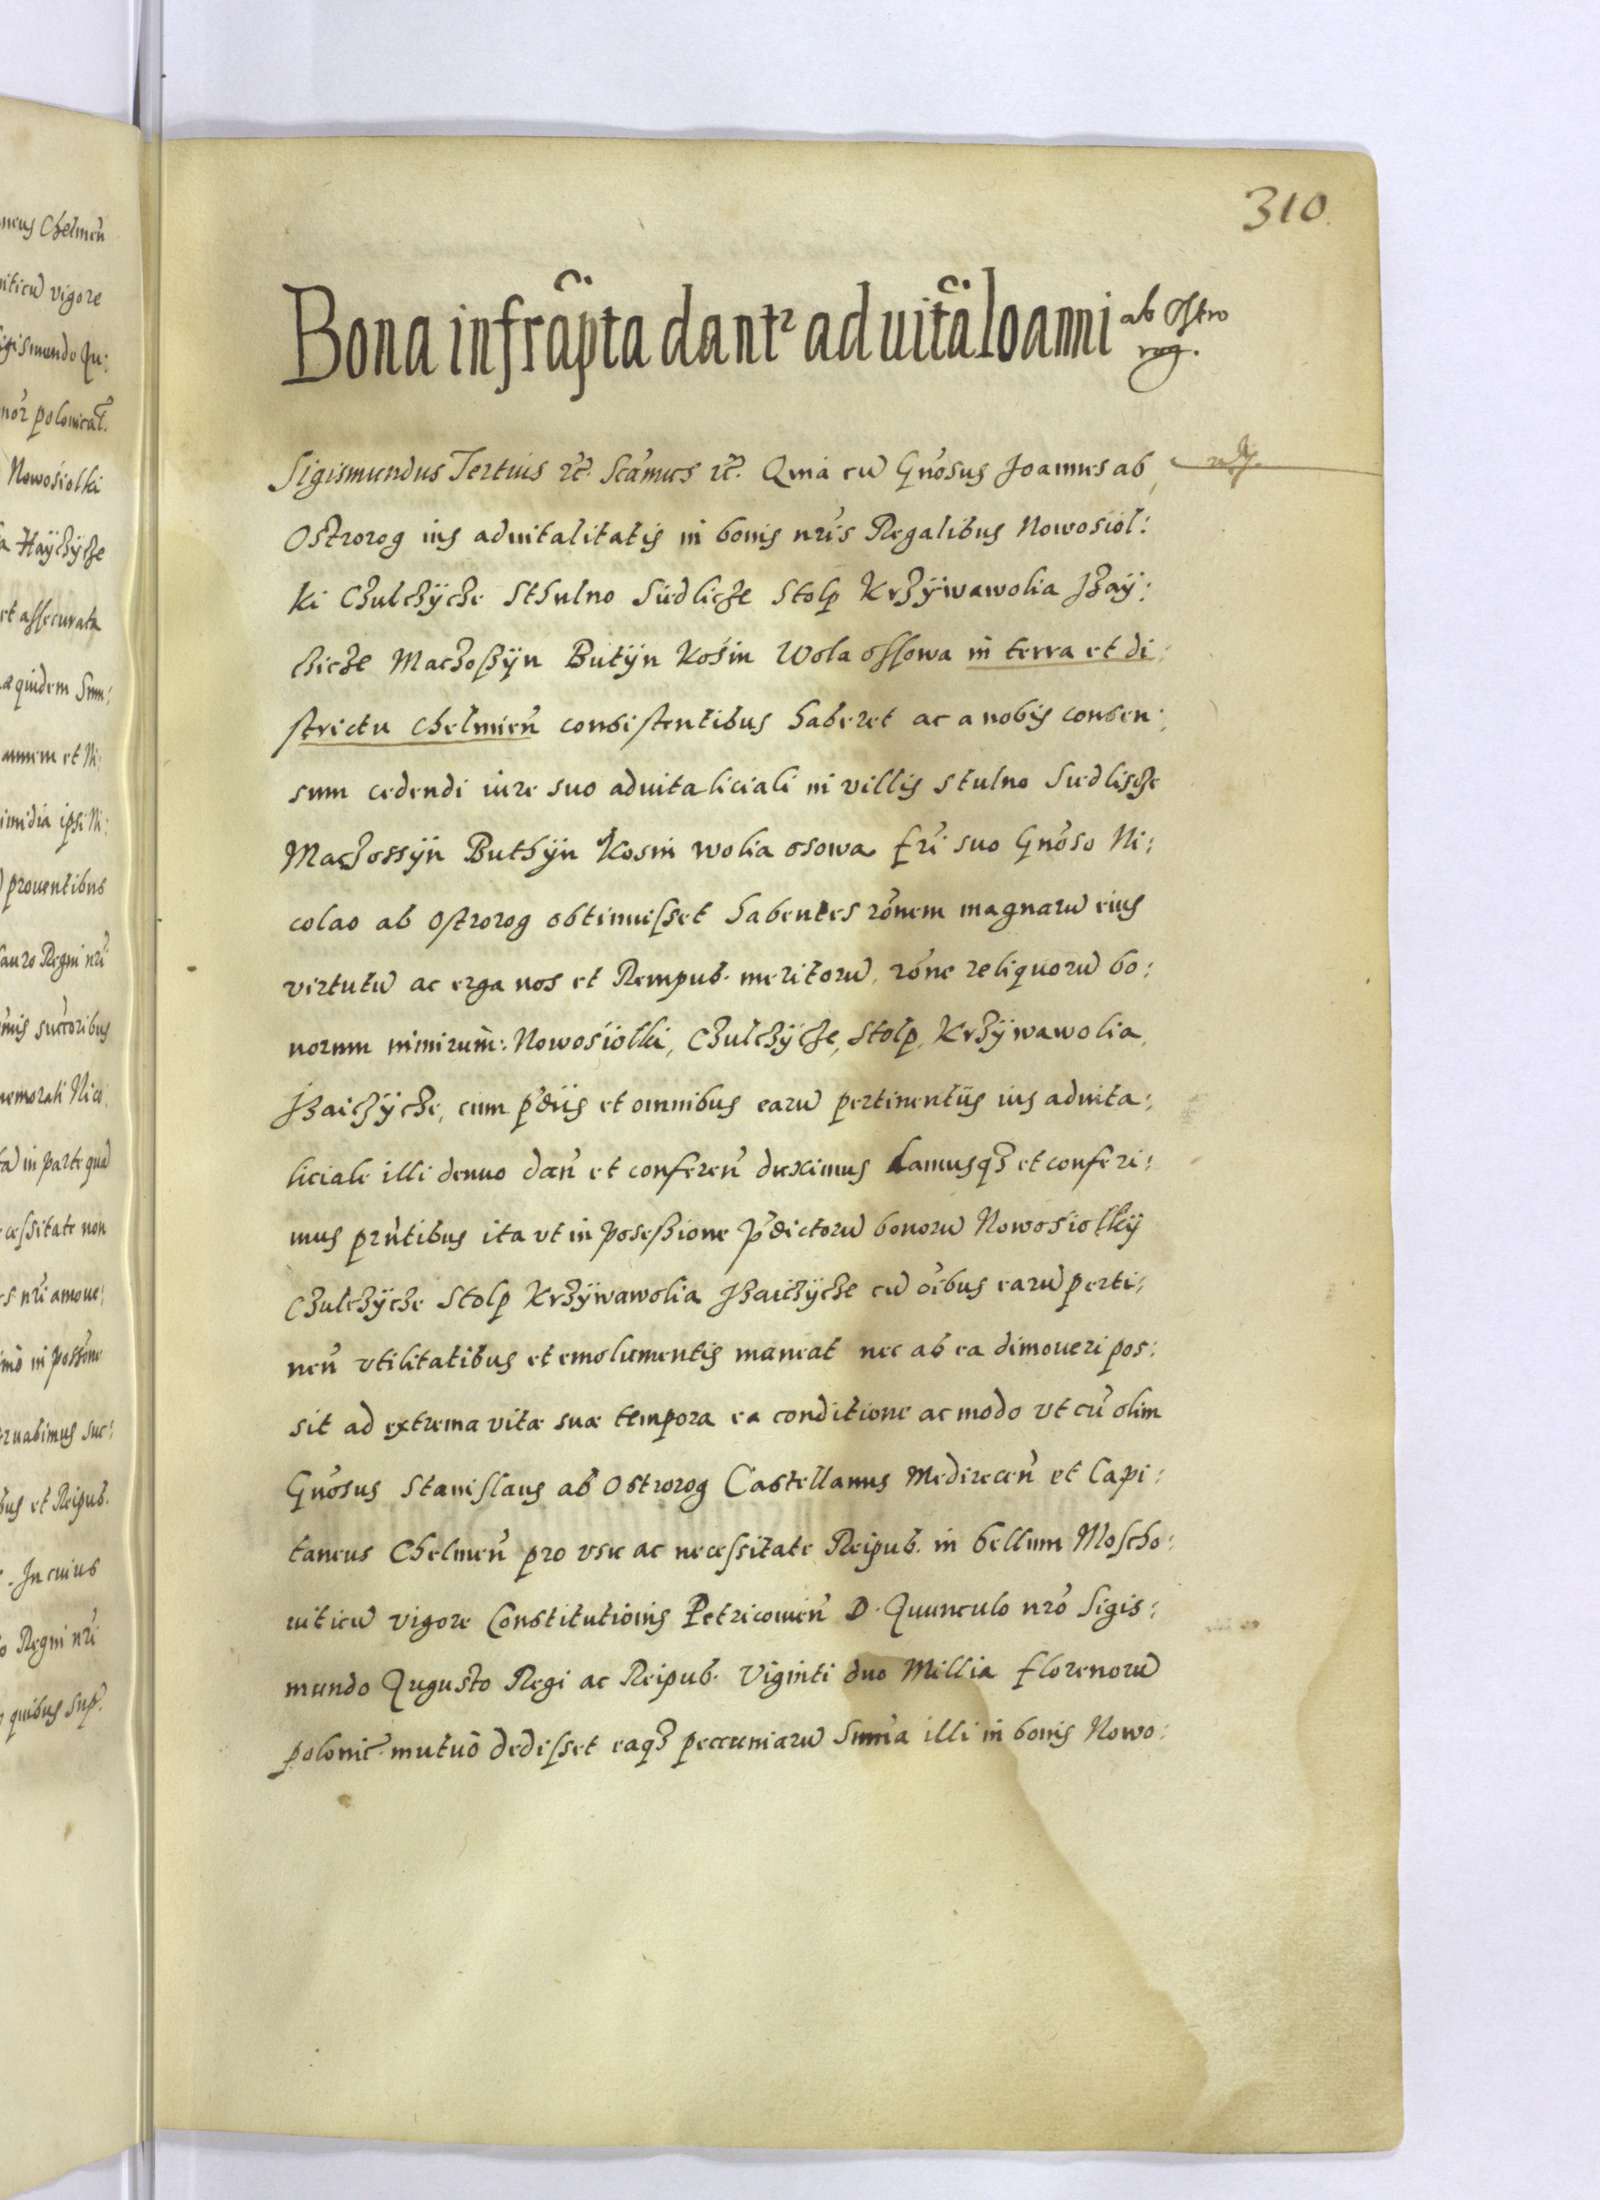 310
Bona infrãpta dantr ad uitã Ioanni ab Ostro
rog.
Sigismundus Tertius etc̃. Scãmus etc̃. Quia cũ Gñosus Joannes ab
Ostrorog ius aduitalitatis in bonis nris Regalibus Nowosiol:
ki Czulczÿcze Sthulno Siedlicze Stolp Krzÿwawolia Hzaÿ:
czicze Maczoszÿn Butÿn Kosin Wola ossowa in terra et di:
strictu Chelmeñ consistentibus haberet ac a nobis consen:
sum cedendi iure suo aduitaliciali in villis Stulno Siedliscze
Maczossÿn Buthÿn Kosin wolia osowa fri suo Gñoso Ni:
colao ab Ostrorog obtinuisset habentes rõnem magnarũ eius
virtutũ ac erga nos et Rempub. meritorũ, rõne reliquorũ bo:
norum nimirum: Nowosiolki, Czulczÿcze, Stolp, Krzÿwawolia,
Hzaiczÿcze, cum p̃diis et omnibus earũ pertinentiis ius aduita:
liciale illi denuo dañ et confereñ duximus damusq3 et conferi:
mus pr̃ntibus ita vt in posessione p̃dictorũ bonorũ Nowosiolkÿ
Czulczÿcze Stolp Krzÿwawolia Hzaiczÿcze cũ oĩbus earũ perti:
neñ vtilitatibus et emolumentis maneat nec ab ea dimoueri pos:
sit ad extrema vitæ suæ tempora ea conditione ac modo vt cũ olim
Gñosus Stanislaus ab Ostrorog Castellanus Medireceñ et Capi:
taneus Chelmeñ pro vsu ac necessitate Reipub. in bellum Moscho:
uiticũ vigore Constitutionis Petricouieñ D. Auunculo nrõ Sigis:
mundo Augusto Regi ac Reipub. Viginti duo Millia florenorũ
polonic̃. mutuò dedisset eaq3 pecuniarũ Sum̃a illi in bonis Nowo: